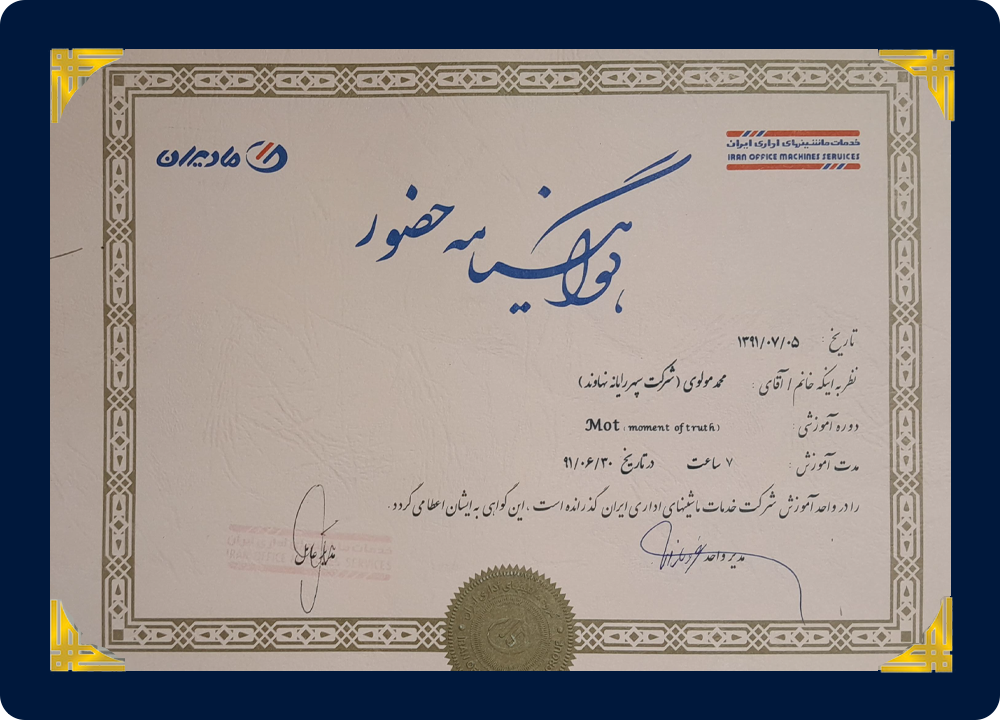 خدمات ماشینهای اداری ایران
IRAN OFFICE MACHINES SERVICES
مادیران
گواهینامه حضور
تاریخ : ۱۳۹۱/۰۷/۰۵
نظر به اینکه خانم / آقای : محمد مولوی (شرکت سپهر رایانه نهاوند)
دوره آموزشی : Mot (moment of truth)
مدت آموزش : ۷ ساعت در تاریخ ۹۱/۰۶/۳۰
را در واحد آموزش شرکت خدمات ماشینهای اداری ایران گذرانده است ، این گواهی به ایشان اعطا می گردد .
مدیر واحد
مدیر عامل
خدمات ماشینهای اداری ایران
IRAN OFFICE MACHINES SERVICES